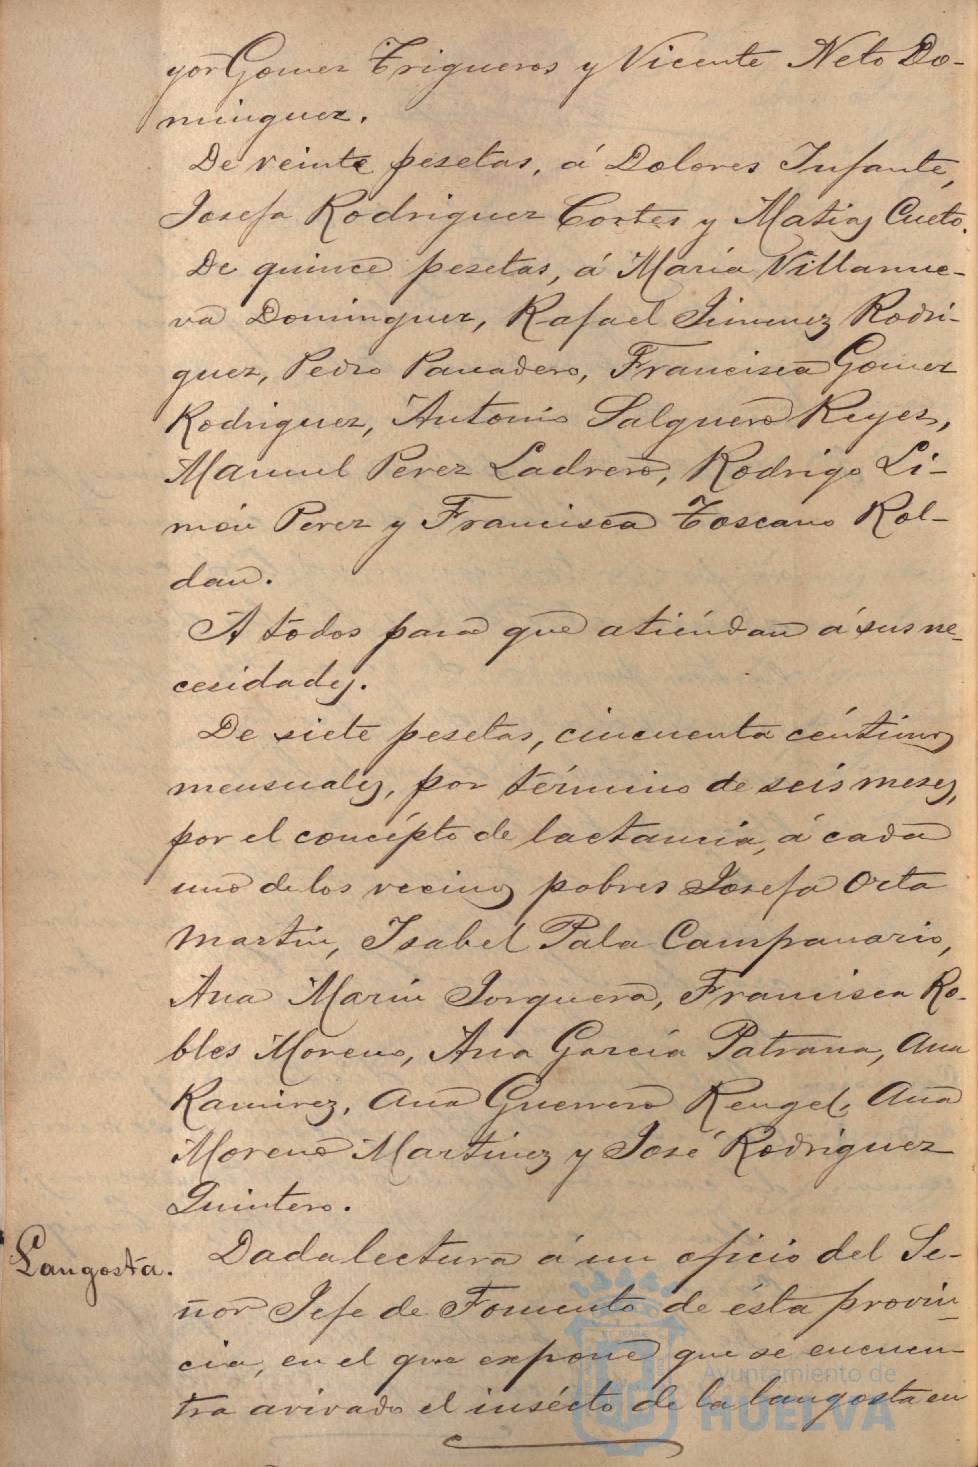 yor Gomez Trigueros y Vicente Neto Do-
minguez.
De veinte pesetas, á Dolores Infante,
Josefa Rodriguez Cortes y Matias Cueto.
De quince pesetas, á Maria Villanue-
va Dominguez, Rafael Jimenez Rodri-
guez, Pedro Panadero, Francisca Gomez
Rodriguez, Antonio Salguero Reyes,
Manuel Perez Ladrero, Rodrigo Li-
món Perez y Francisca Toscano Rol-
dan.
A todos para que atiéndan á sus ne-
cesidades.
De siete pesetas, cincuenta céntimos
mensuales, por término de seis meses,
por el concépto de lactancia, á cada
uno de los vecinos pobres Josefa Orta
Martin, Isabel Pala Campanario,
Ana Marin Jorquera, Francisca Ro-
bles Moreno, Ana García Patrana, Ana
Ramirez, Ana Guerrero Rengel, Ana
Moreno Martinez y José Rodriguez
Quintero.
Langosta. Dada lectura á un oficio del Se-
ñor Jefe de Fomento de ésta provin-
cia, en el que expone que se encuen-
tra avivado el insécto de la langosta en
Ayuntamiento de
HUELVA